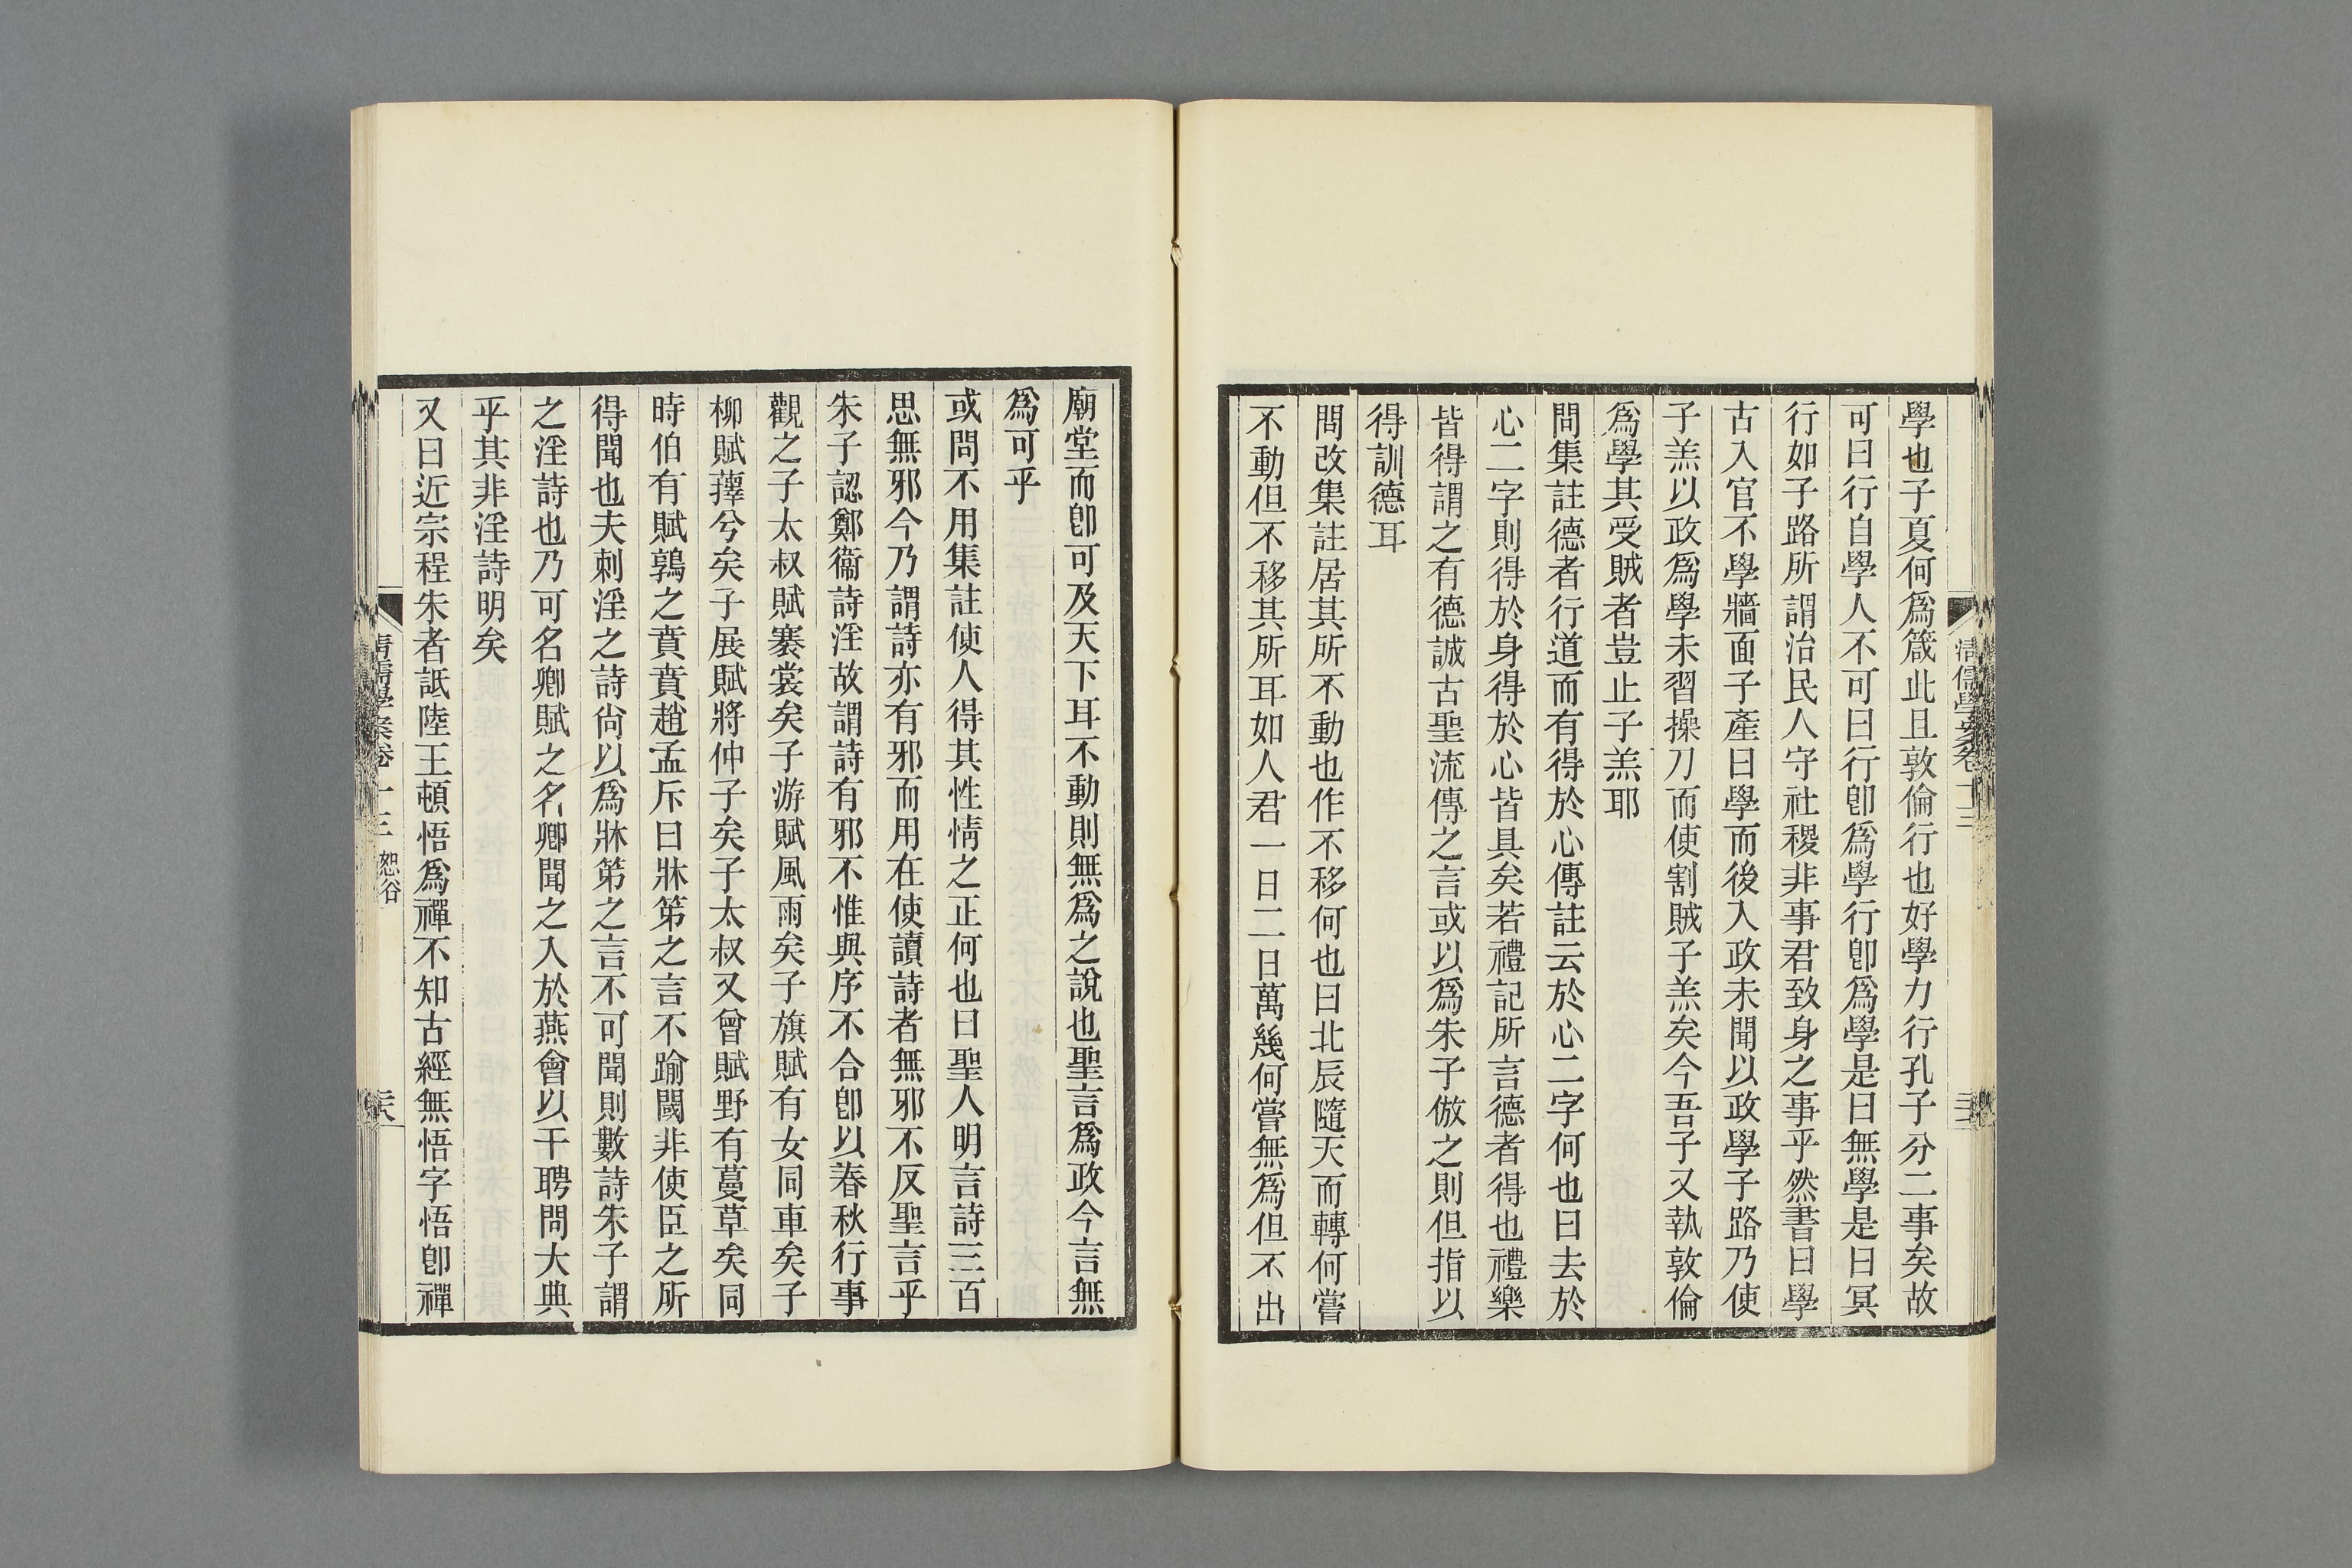 學也子夏何爲箴此且敦倫行也好學力行孔子分二事矣故
可曰行自學人不可曰行卽爲學行卽爲學是曰無學是曰冥
行如子路所謂治民人守社稷非事君致身之事乎然書曰學
古入官不學牆面子產曰學而後入政未聞以政學子路乃使
子羔以政爲學未習操刀而使割賊子羔矣今吾子又執敦倫
爲學其受賊者豈止子羔耶
問集註德者行道而有得於心傳註云於心二字何也曰去於
心二字則得於身得於心皆具矣若禮記所言德者得也禮樂
皆得謂之有德誠古聖流傳之言或以爲朱子倣之則但指以
得訓德耳
問改集註居其所不動也作不移何也曰北辰隨天而轉何嘗
不動但不移其所耳如人君一日二日萬幾何嘗無爲但不出
清儒學案卷十三
廟堂而卽可及天下耳不動則無爲之說也聖言爲政今言無
爲可乎
或問不用集註使人得其性情之正何也曰聖人明言詩三百
思無邪今乃謂詩亦有邪而用在使讀詩者無邪不反聖言乎
朱子認鄭衞詩淫故謂詩有邪不惟與序不合卽以春秋行事
觀之子太叔賦褰裳矣子游賦風雨矣子旗賦有女同車矣子
柳賦蘀兮矣子展賦將仲子矣子太叔又曾賦野有蔓草矣同
時伯有賦鶉之賁賁趙孟斥曰牀笫之言不踰閾非使臣之所
得聞也夫刺淫之詩尚以爲牀笫之言不可聞則數詩朱子謂
之淫詩也乃可名卿賦之名卿聞之入於燕會以干聘問大典
乎其非淫詩明矣
又曰近宗程朱者詆陸王頓悟爲禪不知古經無悟字悟卽禪
清儒學案卷十三 恕谷